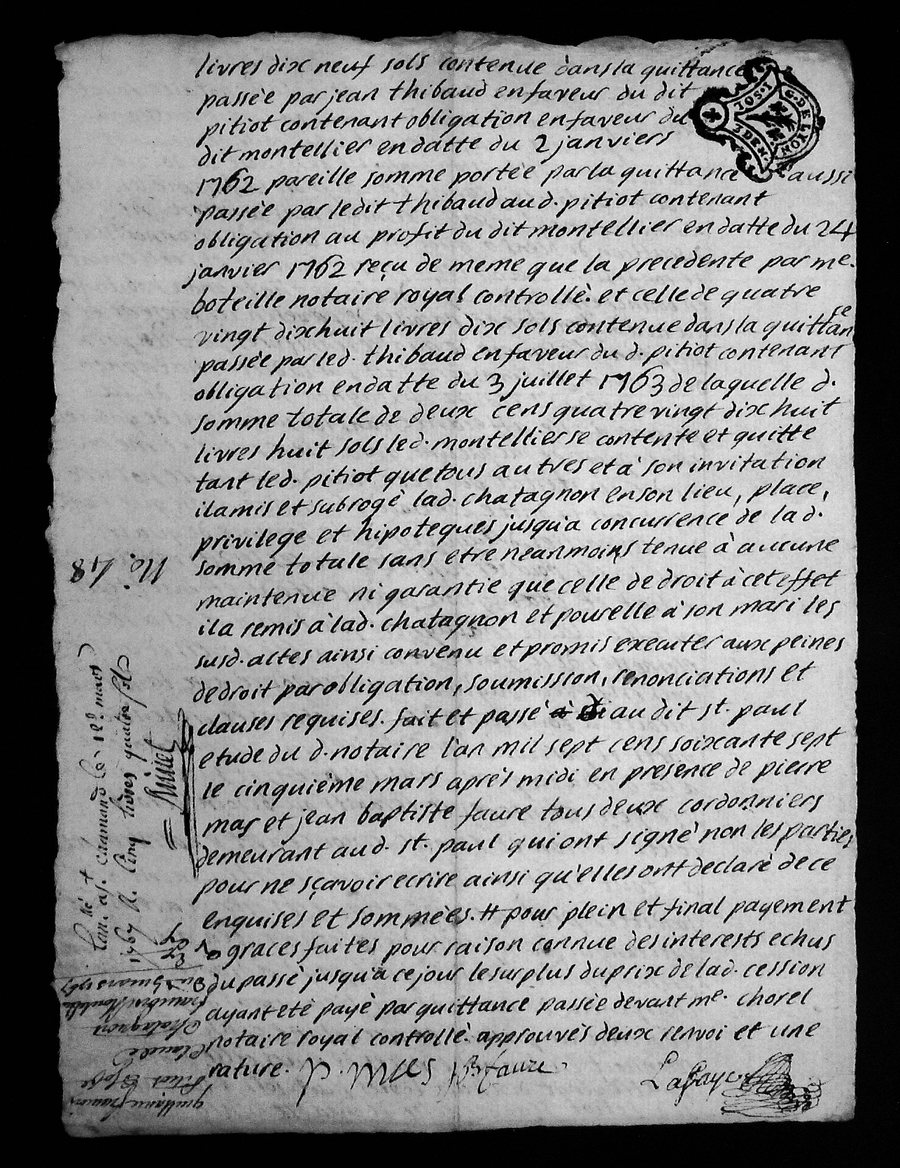 livres dix neuf sols contenue dans la quittance
passée par jean thibaud en faveur du dit
pitiot contenant obligation en faveur du
dit montellier en datte du 2 janviers
1762 pareille somme portée par la quittance aussi
passée par ledit thibaud au d. pitiot contenant
obligation au profit du dit montellier en datte du 24
janvier 1762 reçu de meme que la precedente par me.
boteille notaire royal controllè. et celle de quatre
vingt dix huit livres dix sols contenue dans la quittance
passée par led. thibaud en faveur du d. pitiot contenant
obligation en datte du 3 juillet 1763 de laquelle d.
somme totale de deux cens quatre vingt dix huit
livres huit sols led. montellier se contente et quitte
tant led. pitiot que tous autres et à son invitation
il a mis et subrogé lad. chatagnon en son lieu, place,
privilege et hipoteques jusqu'a concurrence de la d.
somme totale sans etre neanmoins tenue à aucune
maintenue ni garantie que celle de droit à cet effet
il a remis à lad. chatagnon et pour elle à son mari les
susd. actes ainsi convenu et promis executer aux peines
de droit par obligation, soumission, renonciations et
clauses requises. fait et passé à au dit st. paul
etude du d. notaire l'an mil sept cens soixante sept
le cinquième mars après midi en presence de pierre
mas et jean baptiste faure tous deux cordonniers
demeurant au d. st. paul qui ont signé non les parties
pour ne sçavoir ecrire ainsi qu'elles ont declarè de ce
enquises et sommées. # pour plein et final payement
graces faites pour raison connue des interests echus
du passé jusqu'à ce jour le surplus du prix de lad. cession
ayant eté payé par quittance passée devant me. chorel
notaire royal controllè. approuvés deux renvoi et une
rature. p. mas JB faure
Lafaye
G. D. DE LYON
No. 48
à st. chamond le 12 mars
1767 R. cinq livres quatre sols